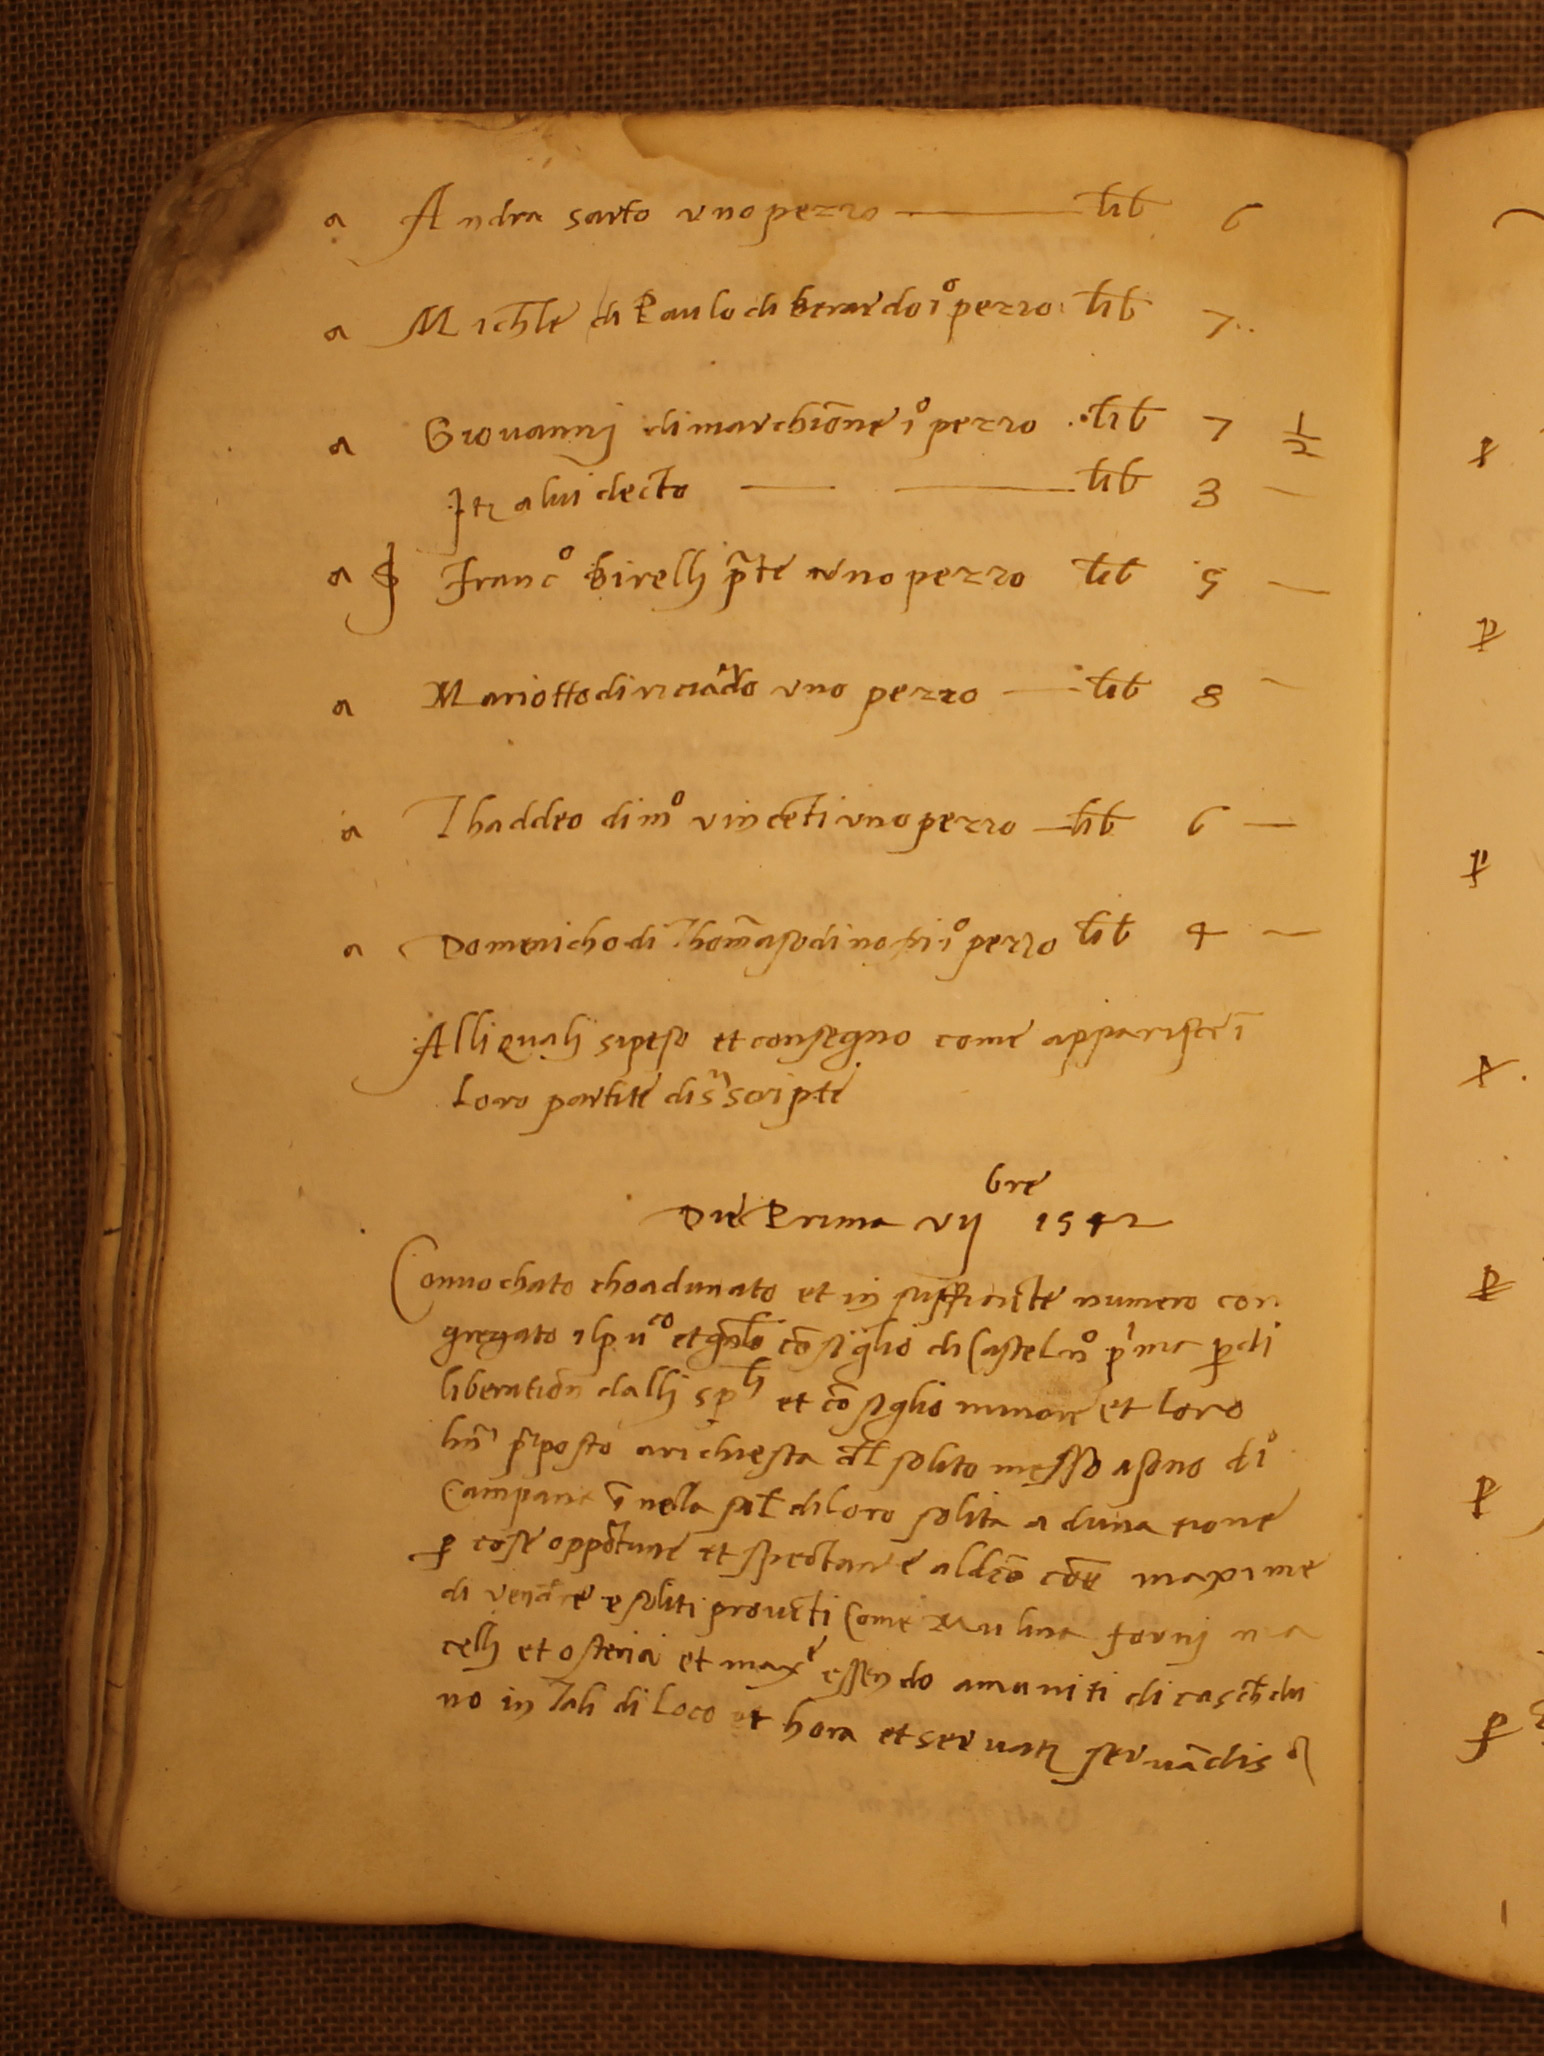 a Andra sarto uno pezzo — lib 6
a Michele di Paulo di berardo 1º pezzo lib 7
a Giovannj di marchione 1º pezzo lib 7 ½
Itz a lui decto — — lib 3 —
a Francº birellj p̄te uno pezzo lib 5 —
a Mariotto di riciardo uno pezzo — lib 8 —
a Thaddeo di mº vincēti uno pezzo — lib 6 —
a Domenicho di Thom̄aso di nofri 1º pezzo lib 4 —
Alli qualj si peso et consegno come apparisce ī
Loro partite scripte
bre
Die Prima vij 1542
Convochato choadunato et in sufficiēte numero con
gregato il pu^co et gn̄lo cōsiglio di Castel nº p
liberation dallj sp^li et cōsiglio minore et loro
p̄posto a richiesta del solito messo a sono di
Campane ī nella sal di loro solita aduna tione
p cose oppōtune et spectante al dcō cōe maxime
di vendere e soliti provēti Come Mulina fornj ma
cellj et osteria et max^e essendo amuniti di casch̄du
no in Tali di Loco et hora et servatz servādis